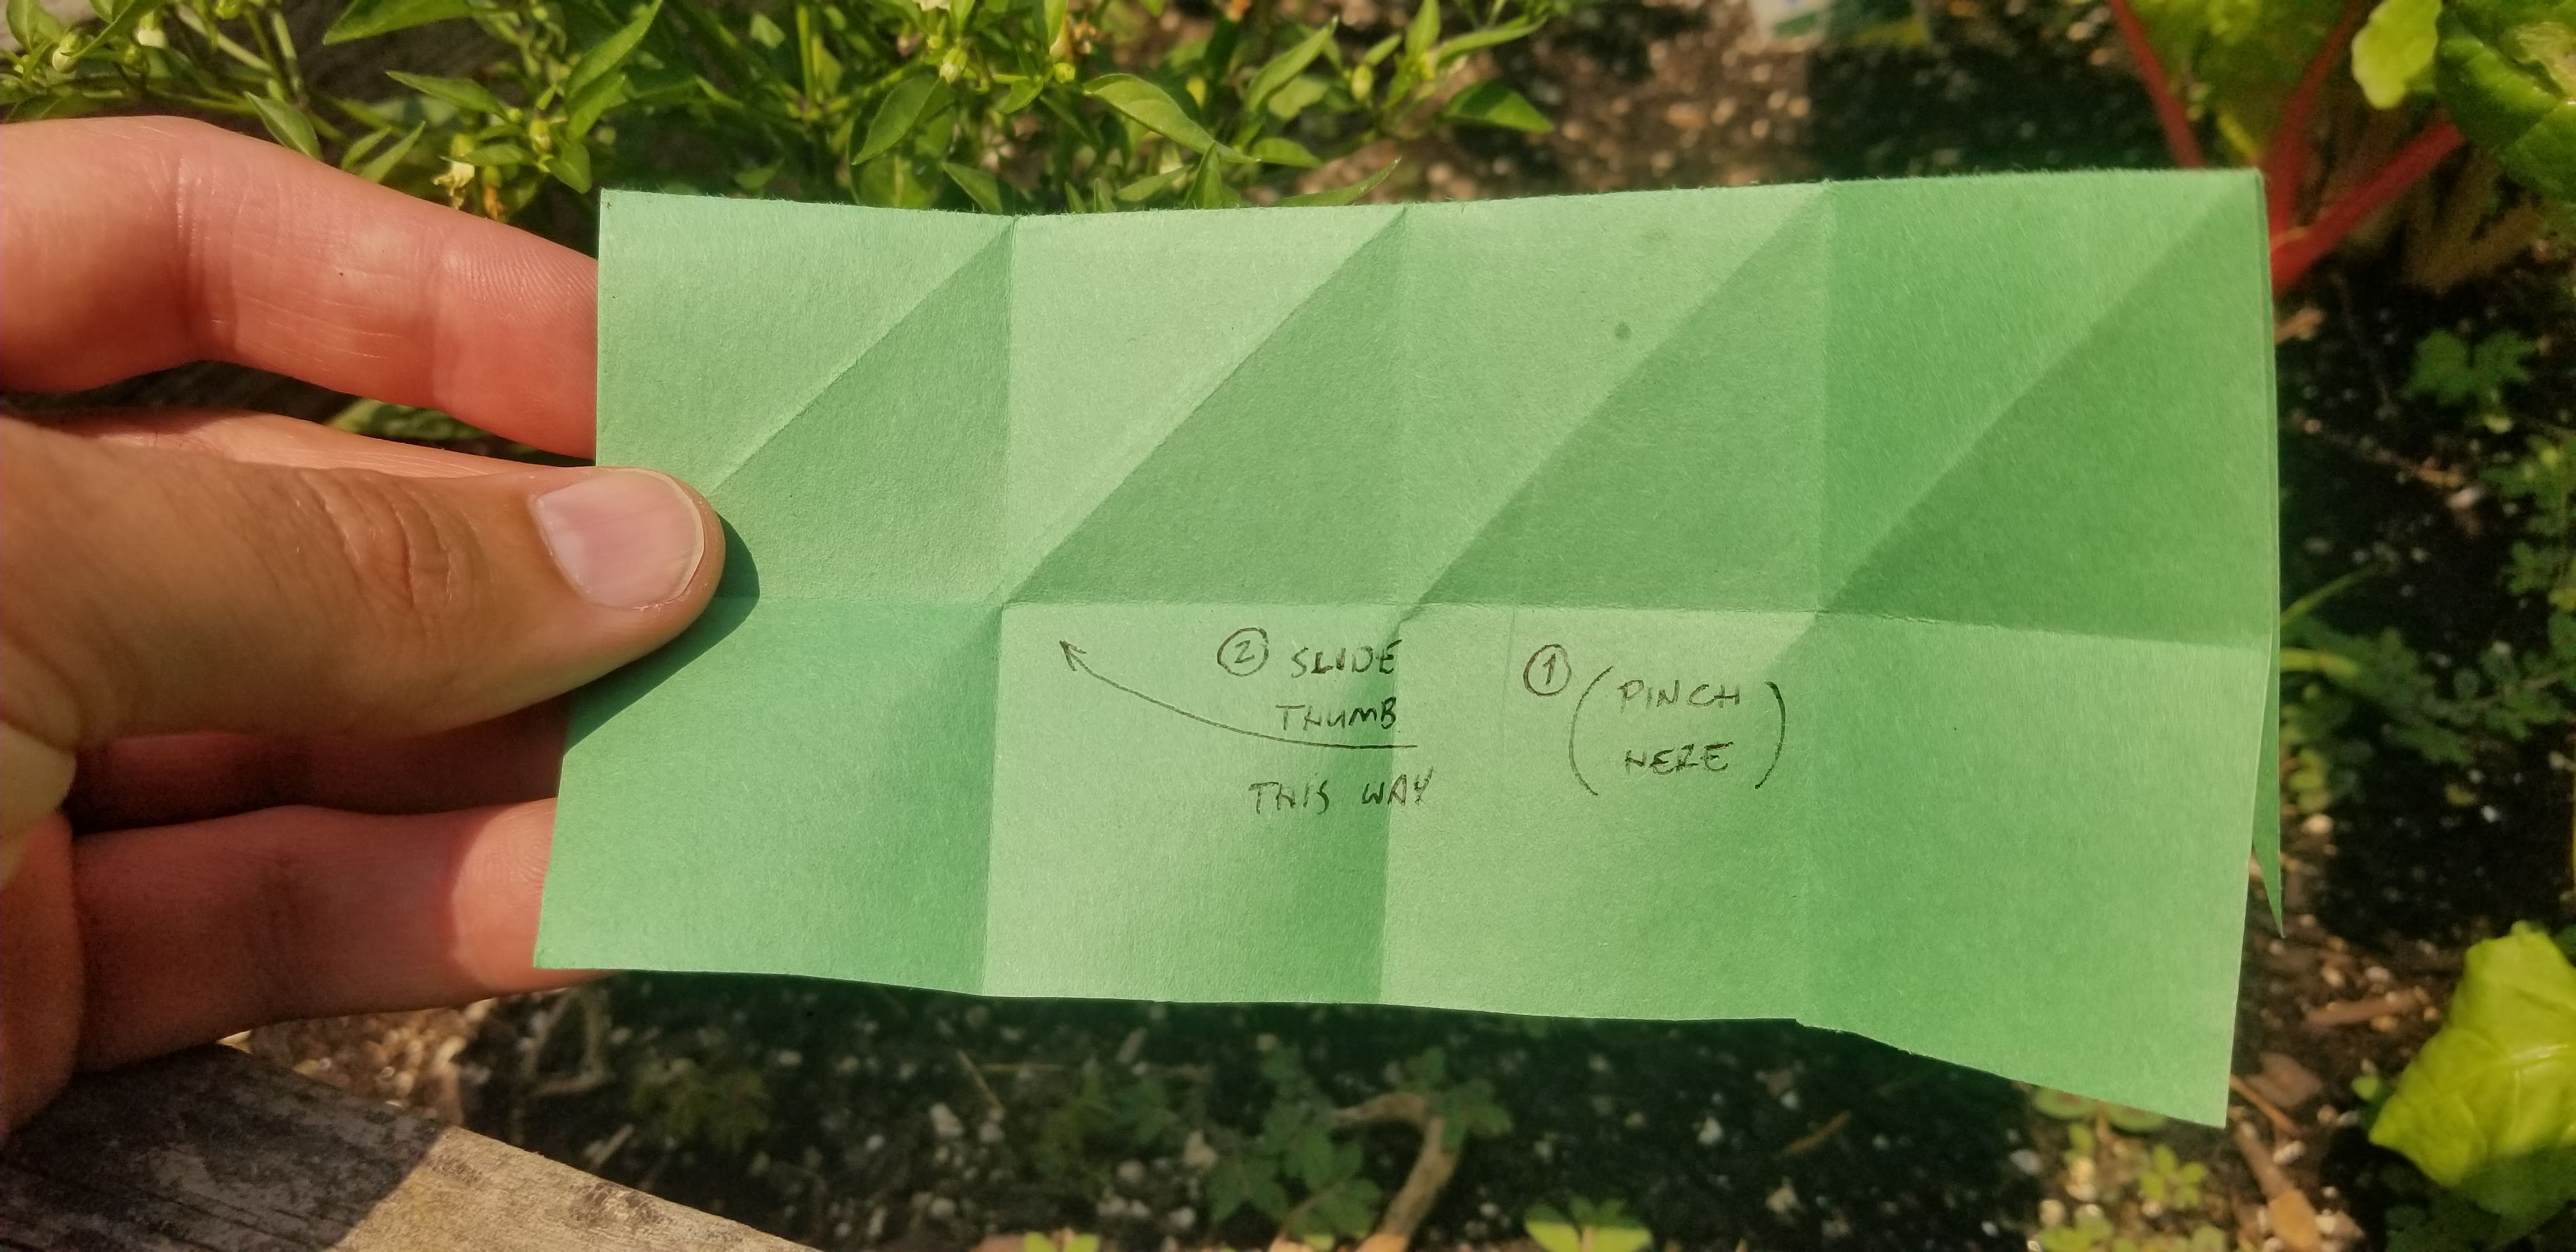 ② SLIDE
THUMB
THIS WAY
① (PINCH
HERE)